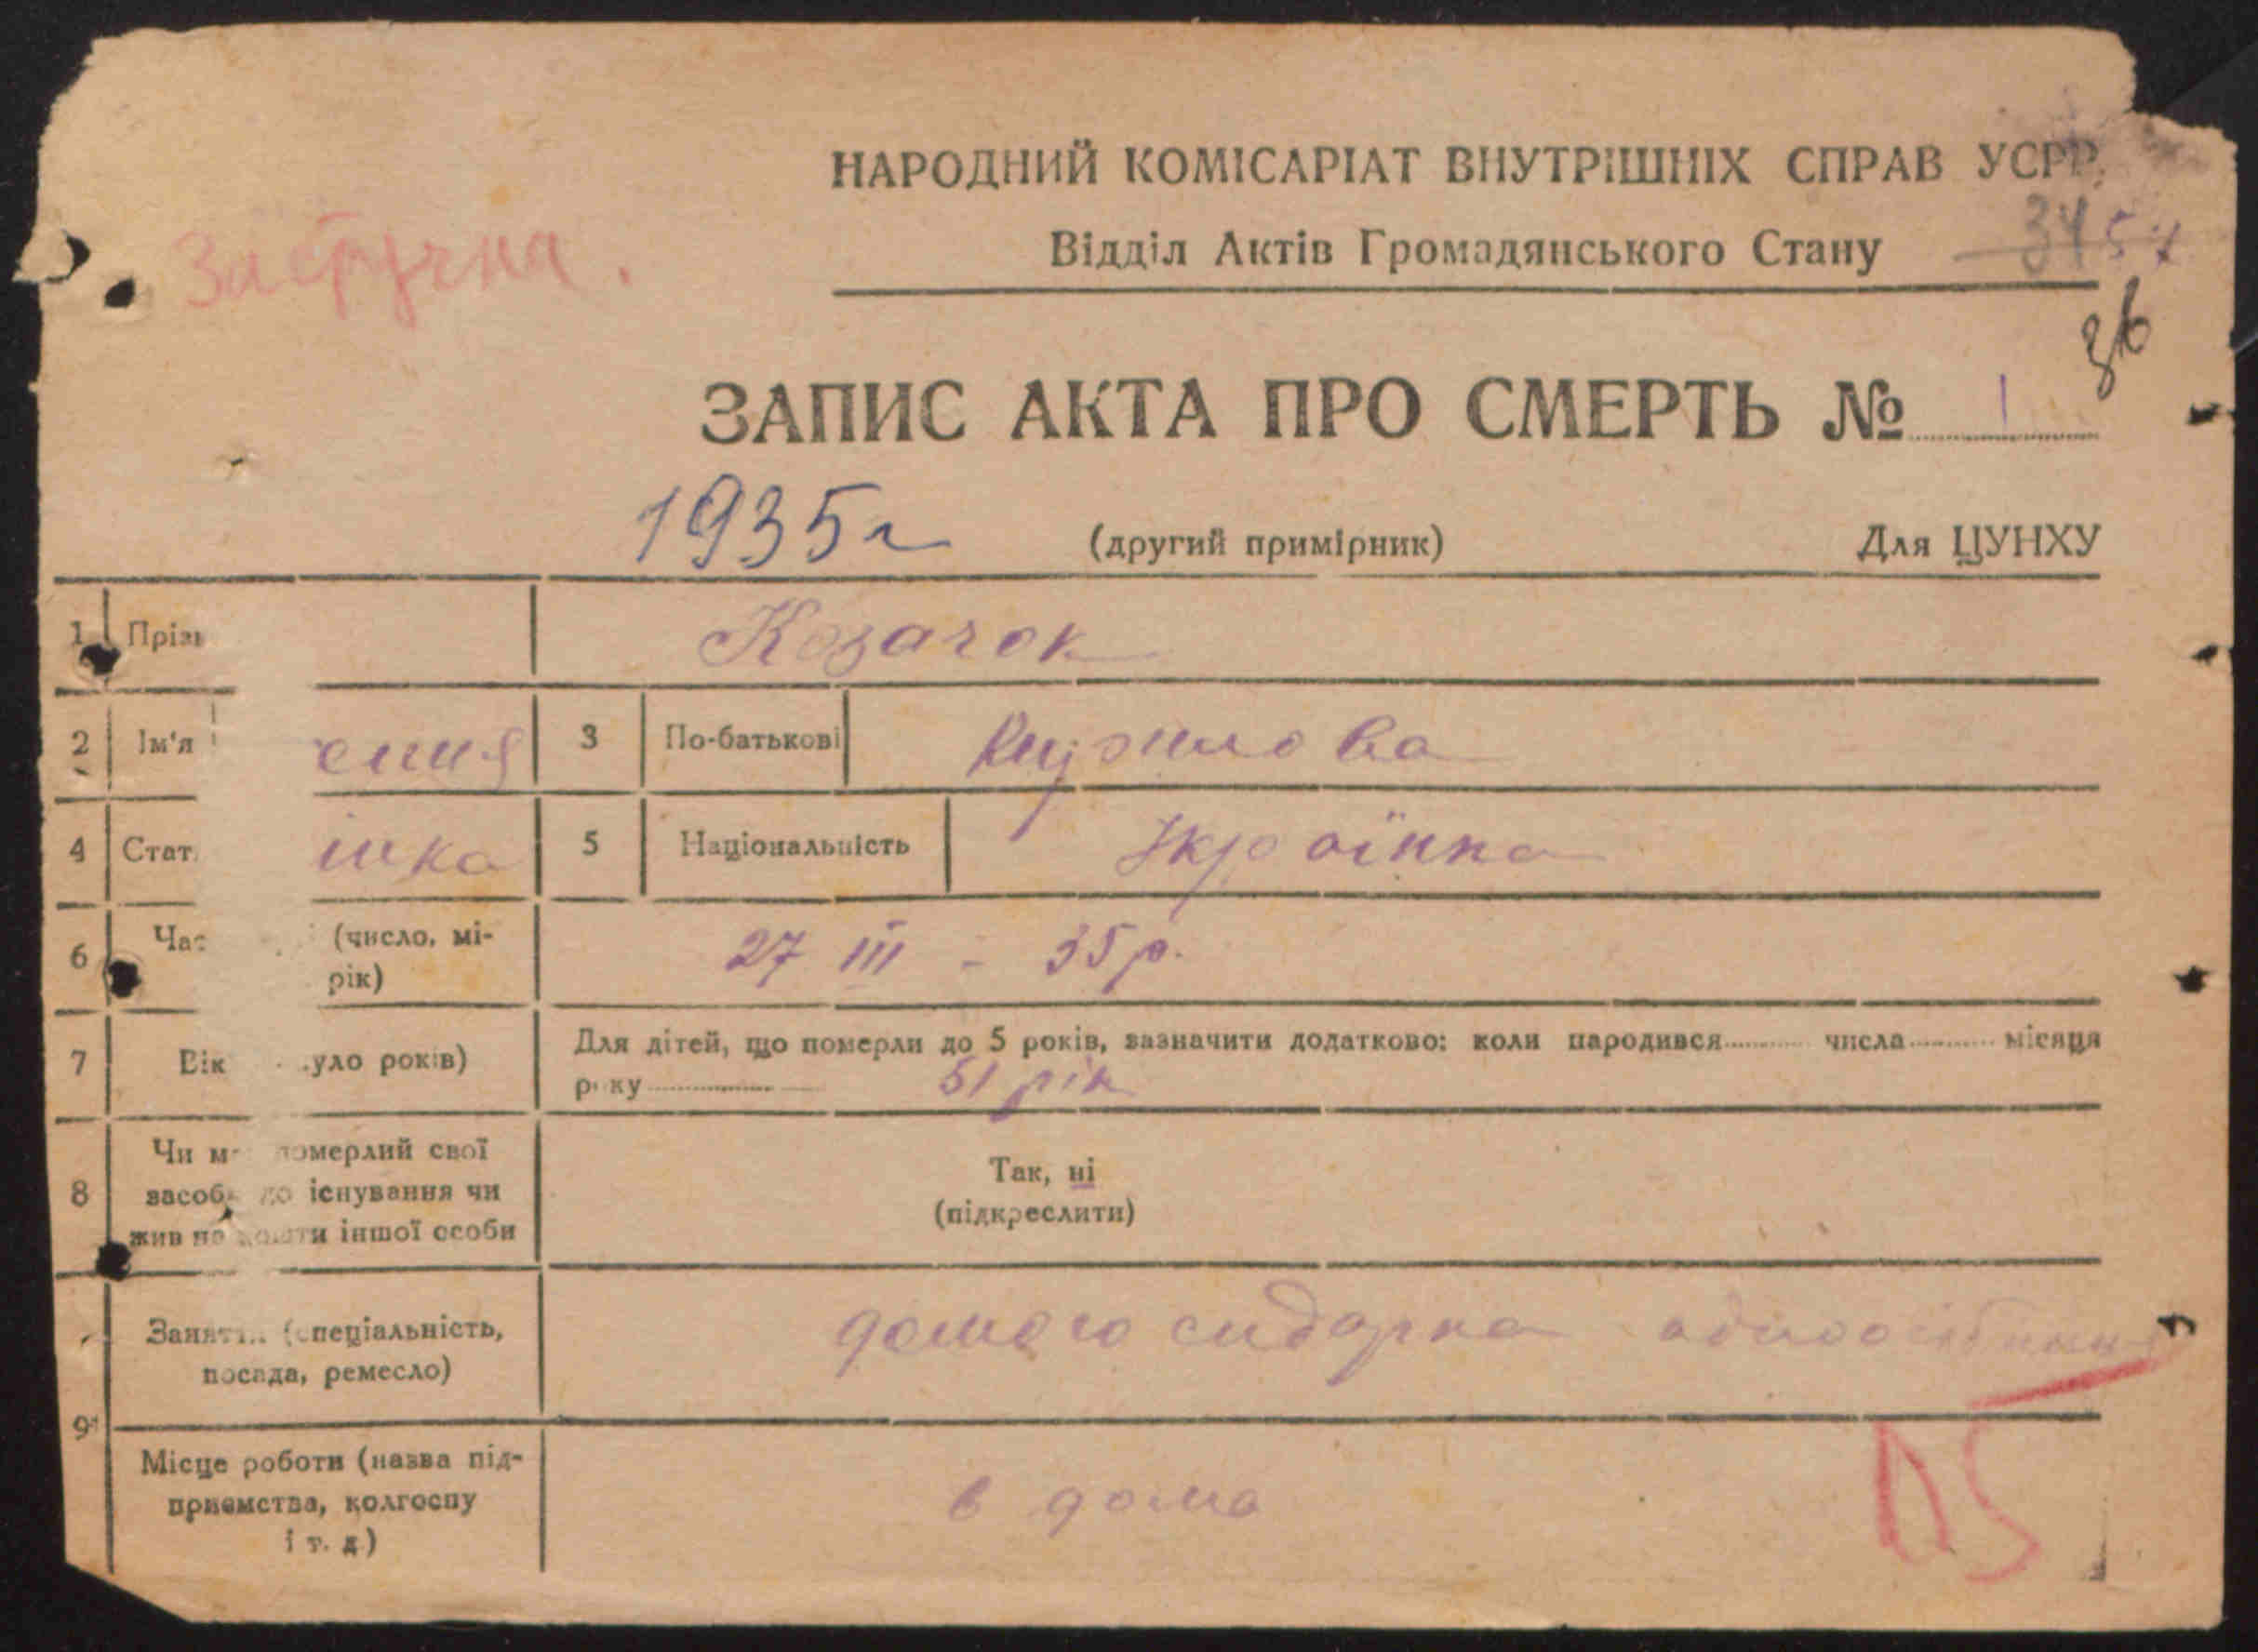 НАРОДНИЙ КОМІСАРІАТ ВНУТРІШНІХ СПРАВ УСРР.
Відділ Актів Громадянського Стану
3457
36
ЗАПИС АКТА ПРО СМЕРТЬ № 1
1935г (другий примірник) Для ЦУНХУ
1 Козачок
2 Ім'я 3 По-батькові
4 Стат. 5 Національність Українка
6 Час (число, мі-
рік)
27 III - 35 р.
7 Вік уло років)
Для дітей, що померли до 5 років, зазначити додатково: коли народився числа місяця
року 51 рік
8 Чи померлий свої
засоби до існування чи
жив на кошти іншої особи
Так, ні
(підкреслити)
Заняття (спеціальність,
посада, ремесло)
9
Місце роботи (назва під-
приємства, колгоспу
і т. д.)
в дома